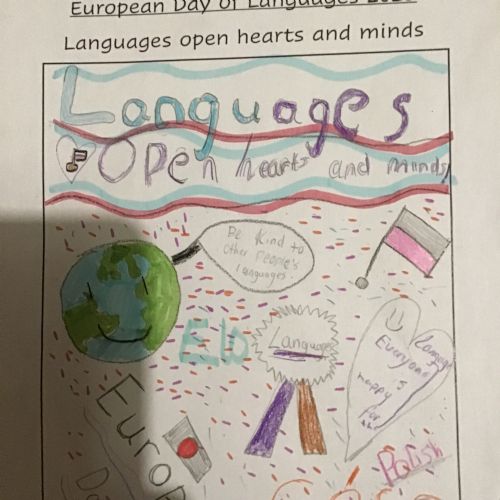 European Day of Languages
Languages open hearts and minds
Languages
Open hearts and minds
Be Kind to
Other People's
languages.
Elo
Language
Everyone
is
happy
for
Europ
Polish